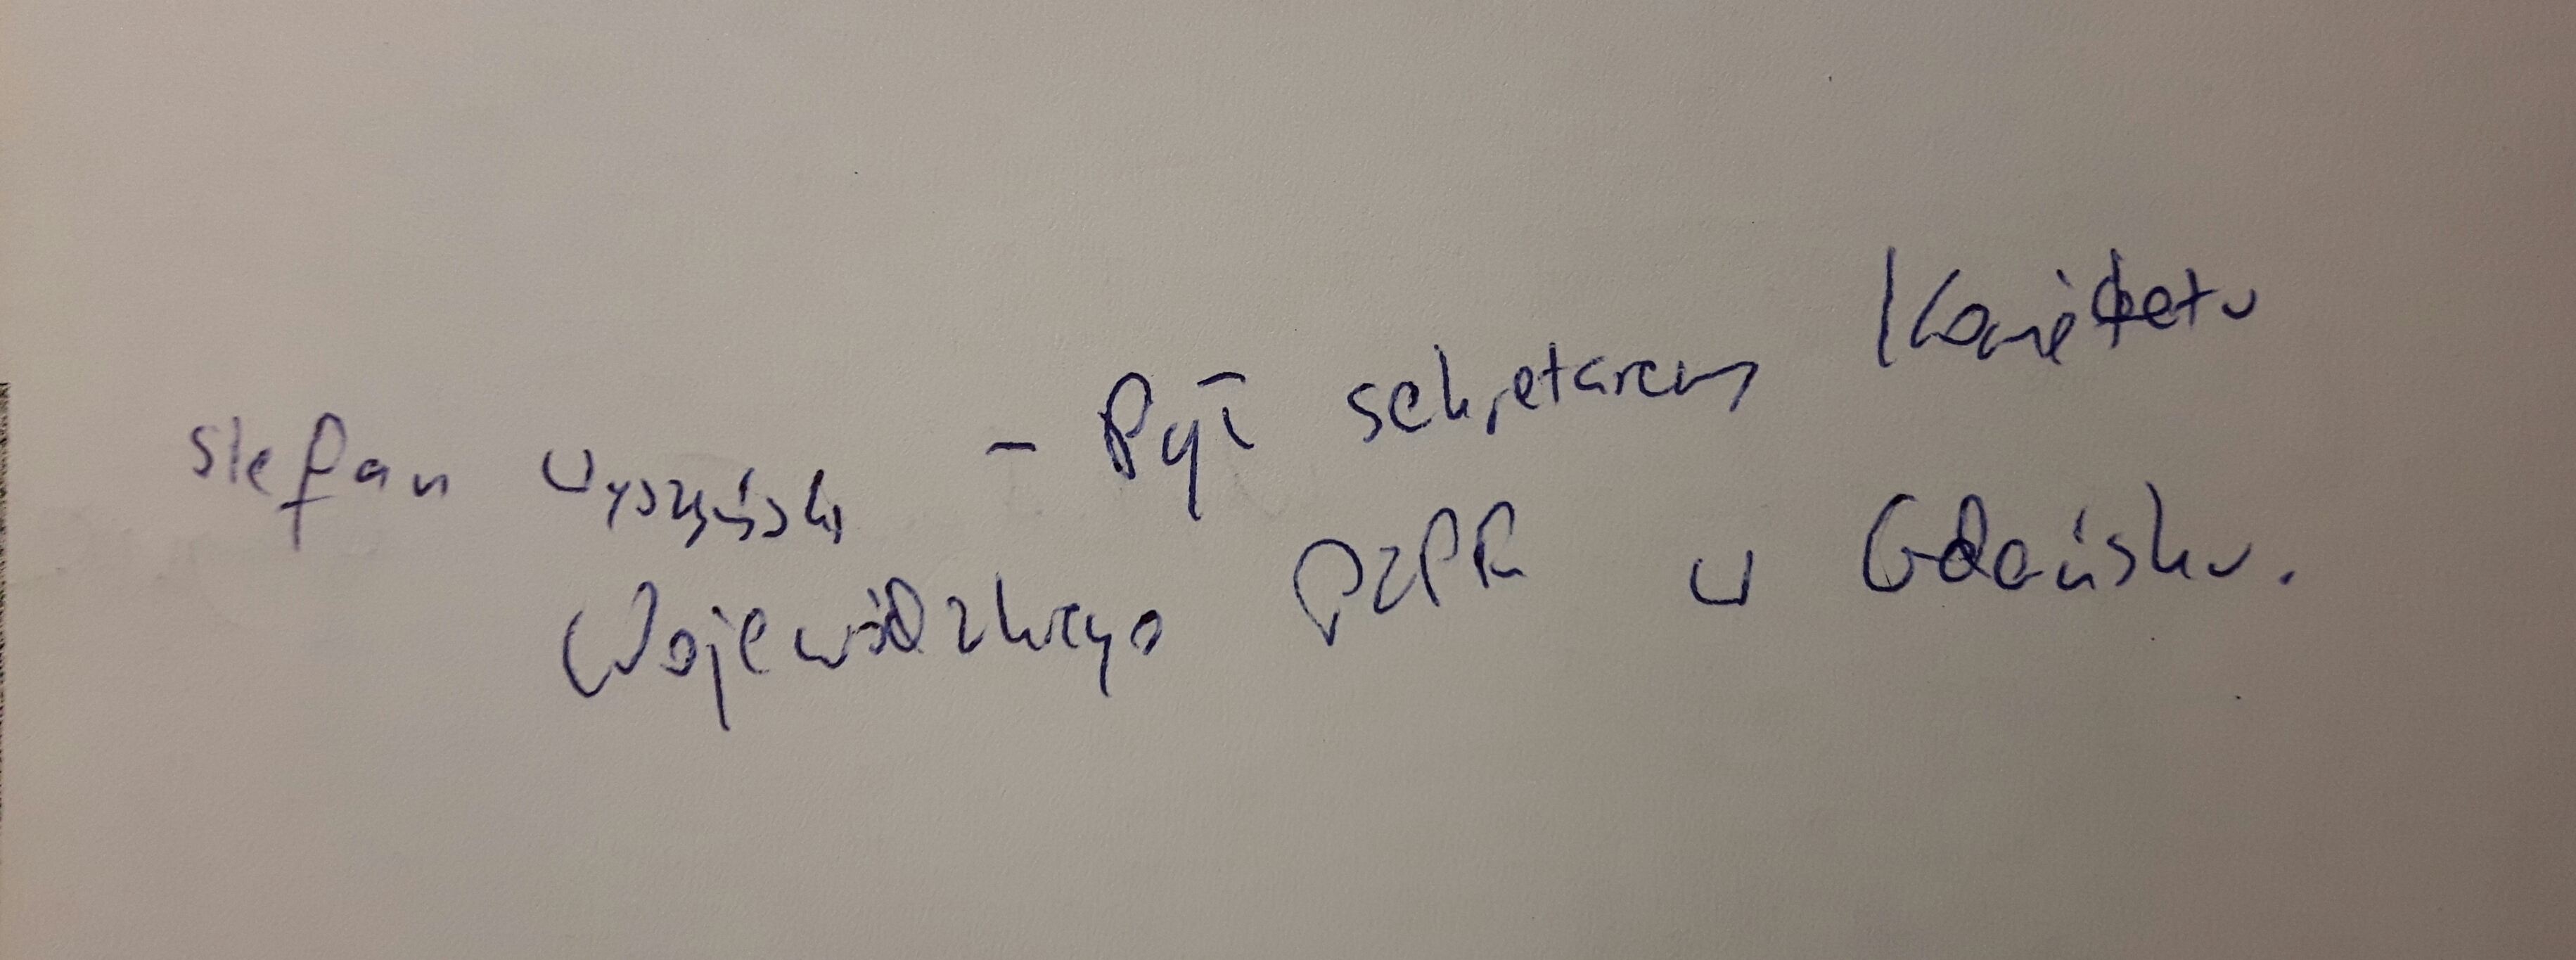 Stefan Wyszyński - Był sekretarzem Komitetu
Wojewódzkiego PZPR w Gdańsku.